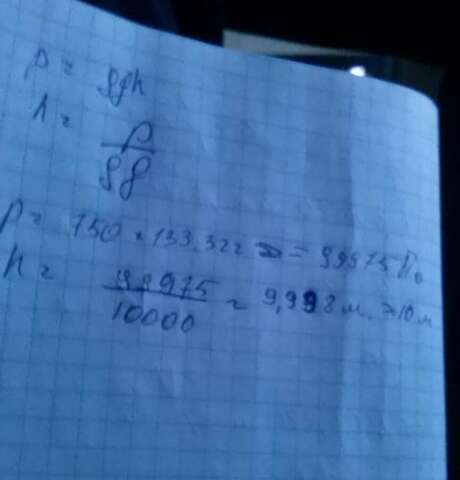 p = ρgh
h = p/ρg
p = 750 × 133.322 = 99975 Па
h = 99975/10000 ≈ 9,998 м. ≈ 10 м